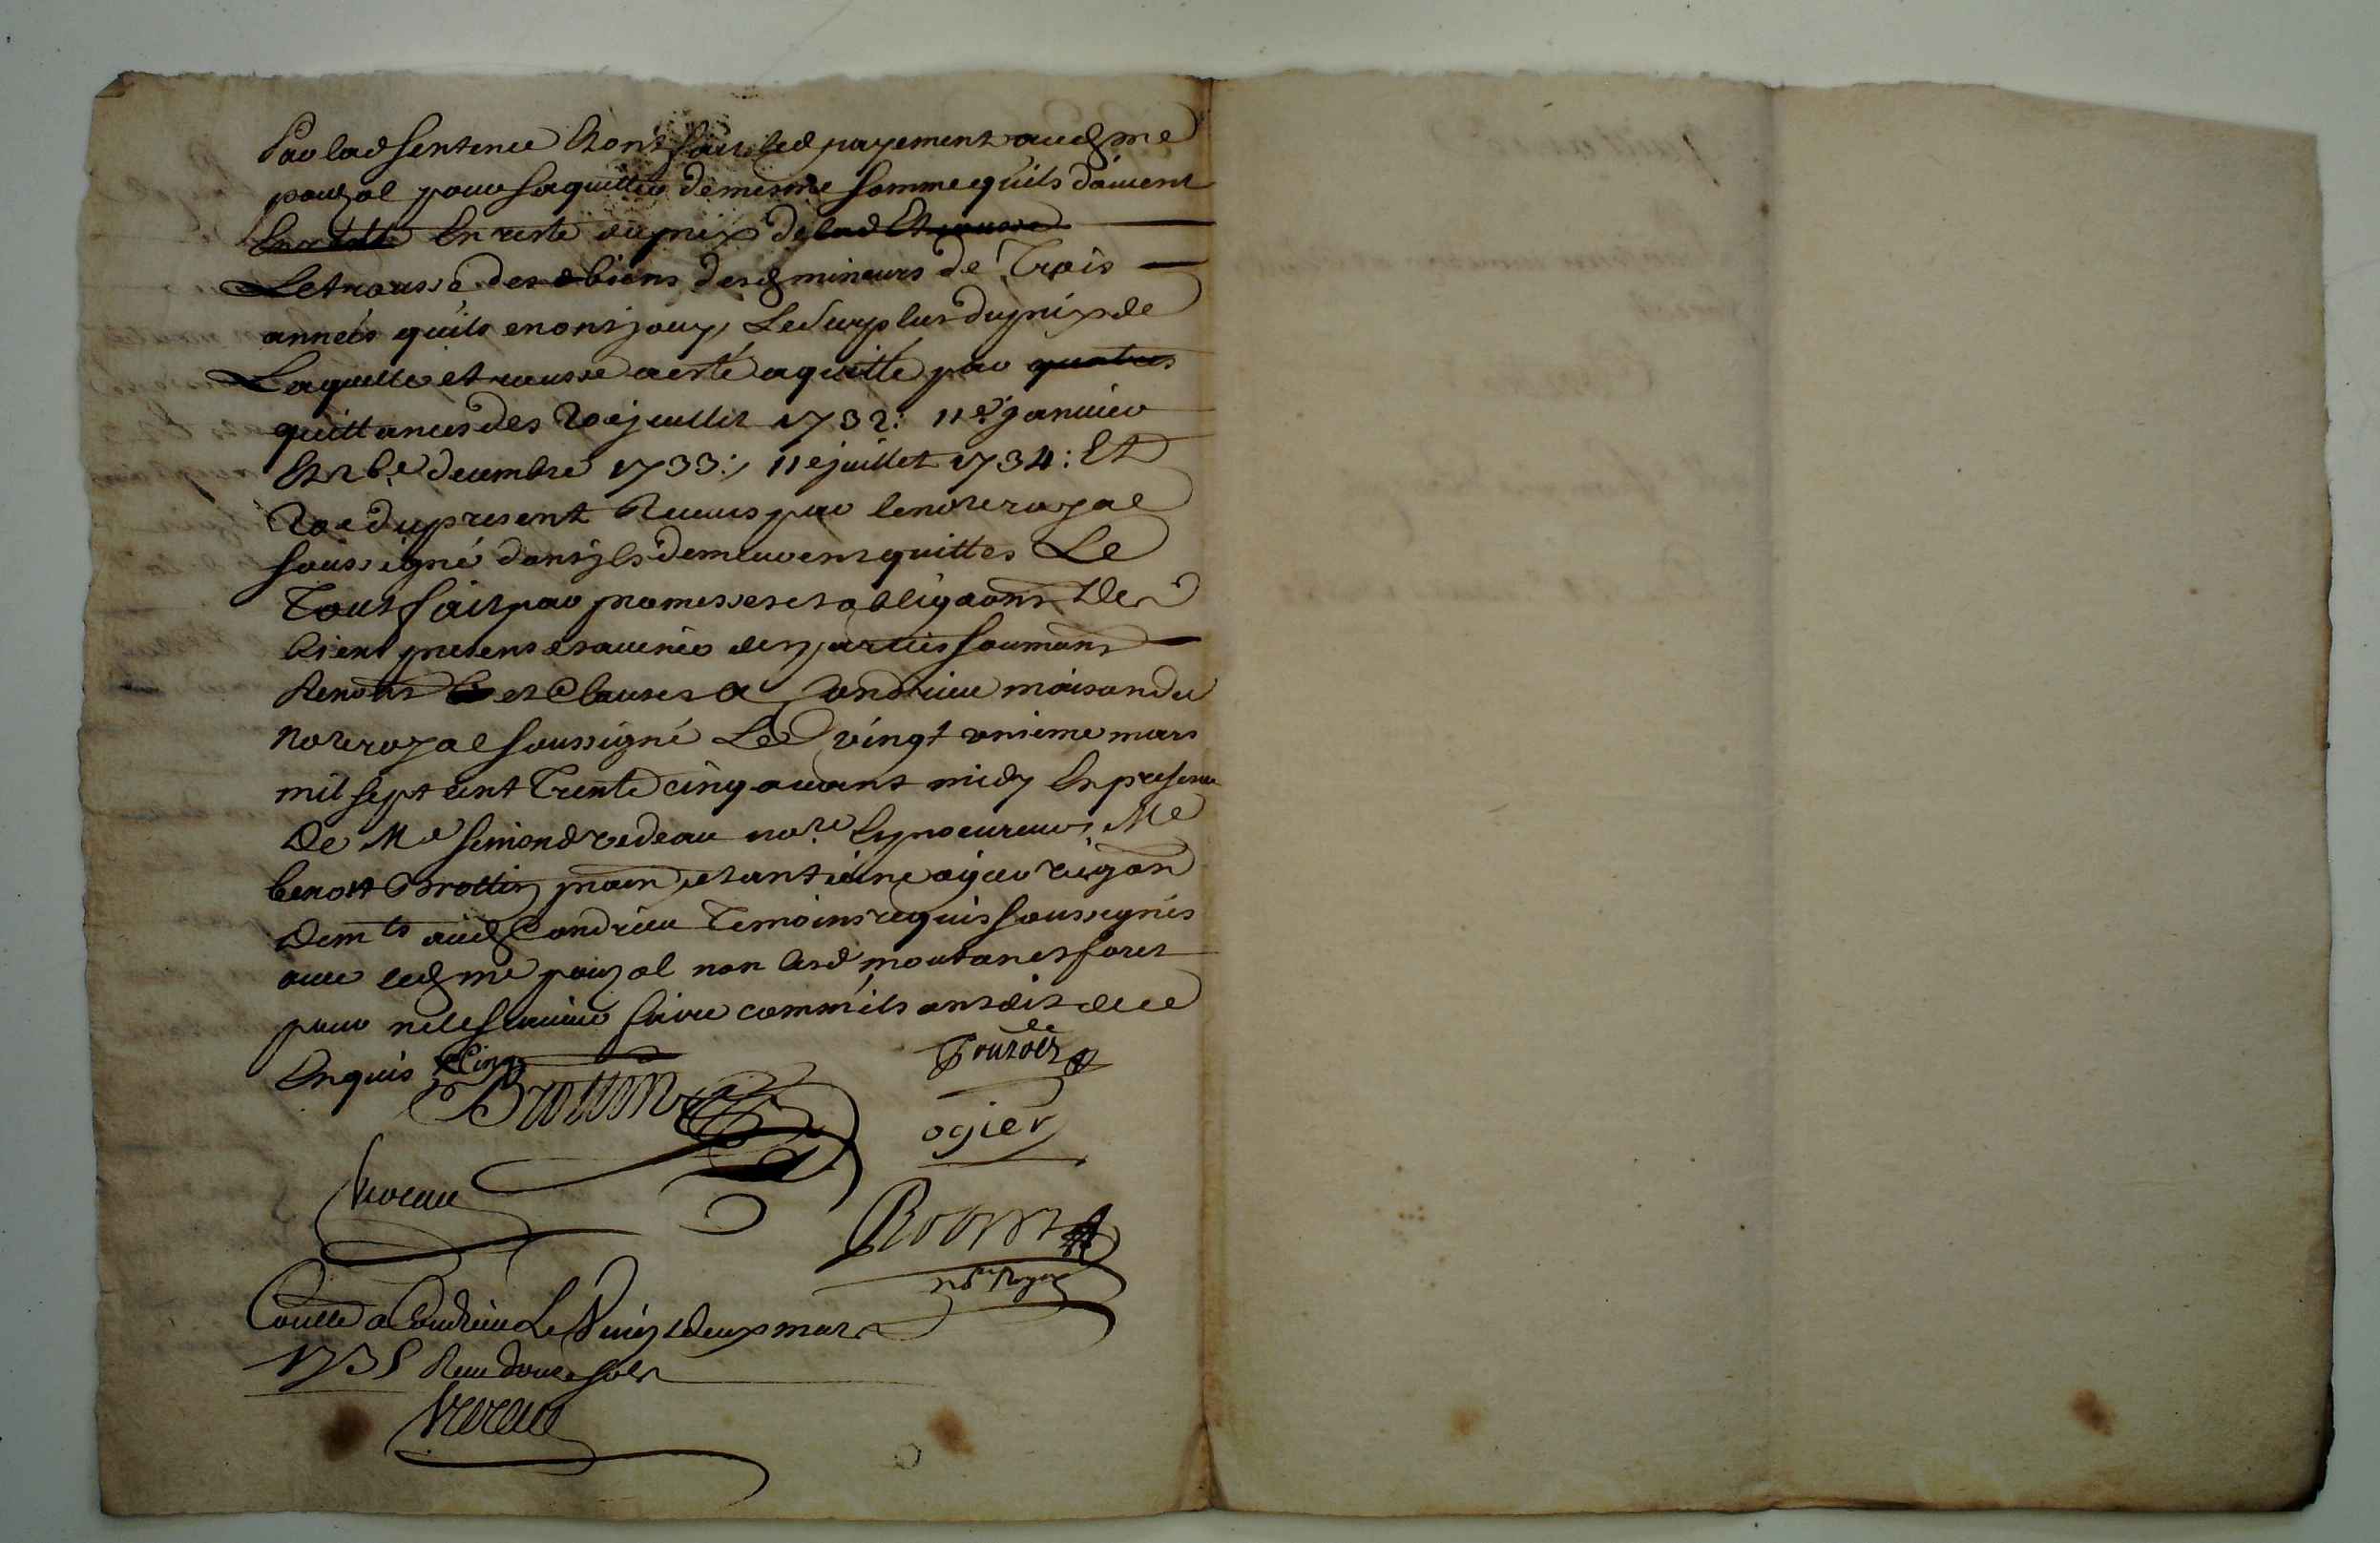 Par lad sentence Et ont fait led payement aud me
pouzol pour saquitter de mesme somme quils doivent
En reste du prix de lad Etrousse
Letrousse des d biens desd mineurs de Trois
années quils en ont jouy, Le surplus du prix de
Laquelle etrousse a esté aquitté par quatres
quittances des 20e juillet 1732: 11e janvier
Et xbre decembre 1733:, 11e juillet 1734: Et
20e du present Receues par le nore royal
soussigné dont ils demeurent quittes Le
Tout fait par promesses et obligaons De
biens presens et avenir des parties soumons
Renons et Clauses a Condrieu maison du
nore royal soussigné Le vingt unieme mars
mil sept cent Trente cinq avant midy En presence
De Me Simond vedeau nore Et procureur, Me
benoit Brottin praen et antoine ogier vigon
Demts aud Condrieu Temoins requis soussignés
avec led me pouzol non lesd moutan et foret
pour ne le scavoir faire comme ils ont dit de ce
Enquis
Brottin
de Pouzols
ogier
Robin
nre Royal
Conllé a Condrieu Le Vingt deux mars
1735 Receu douze sols